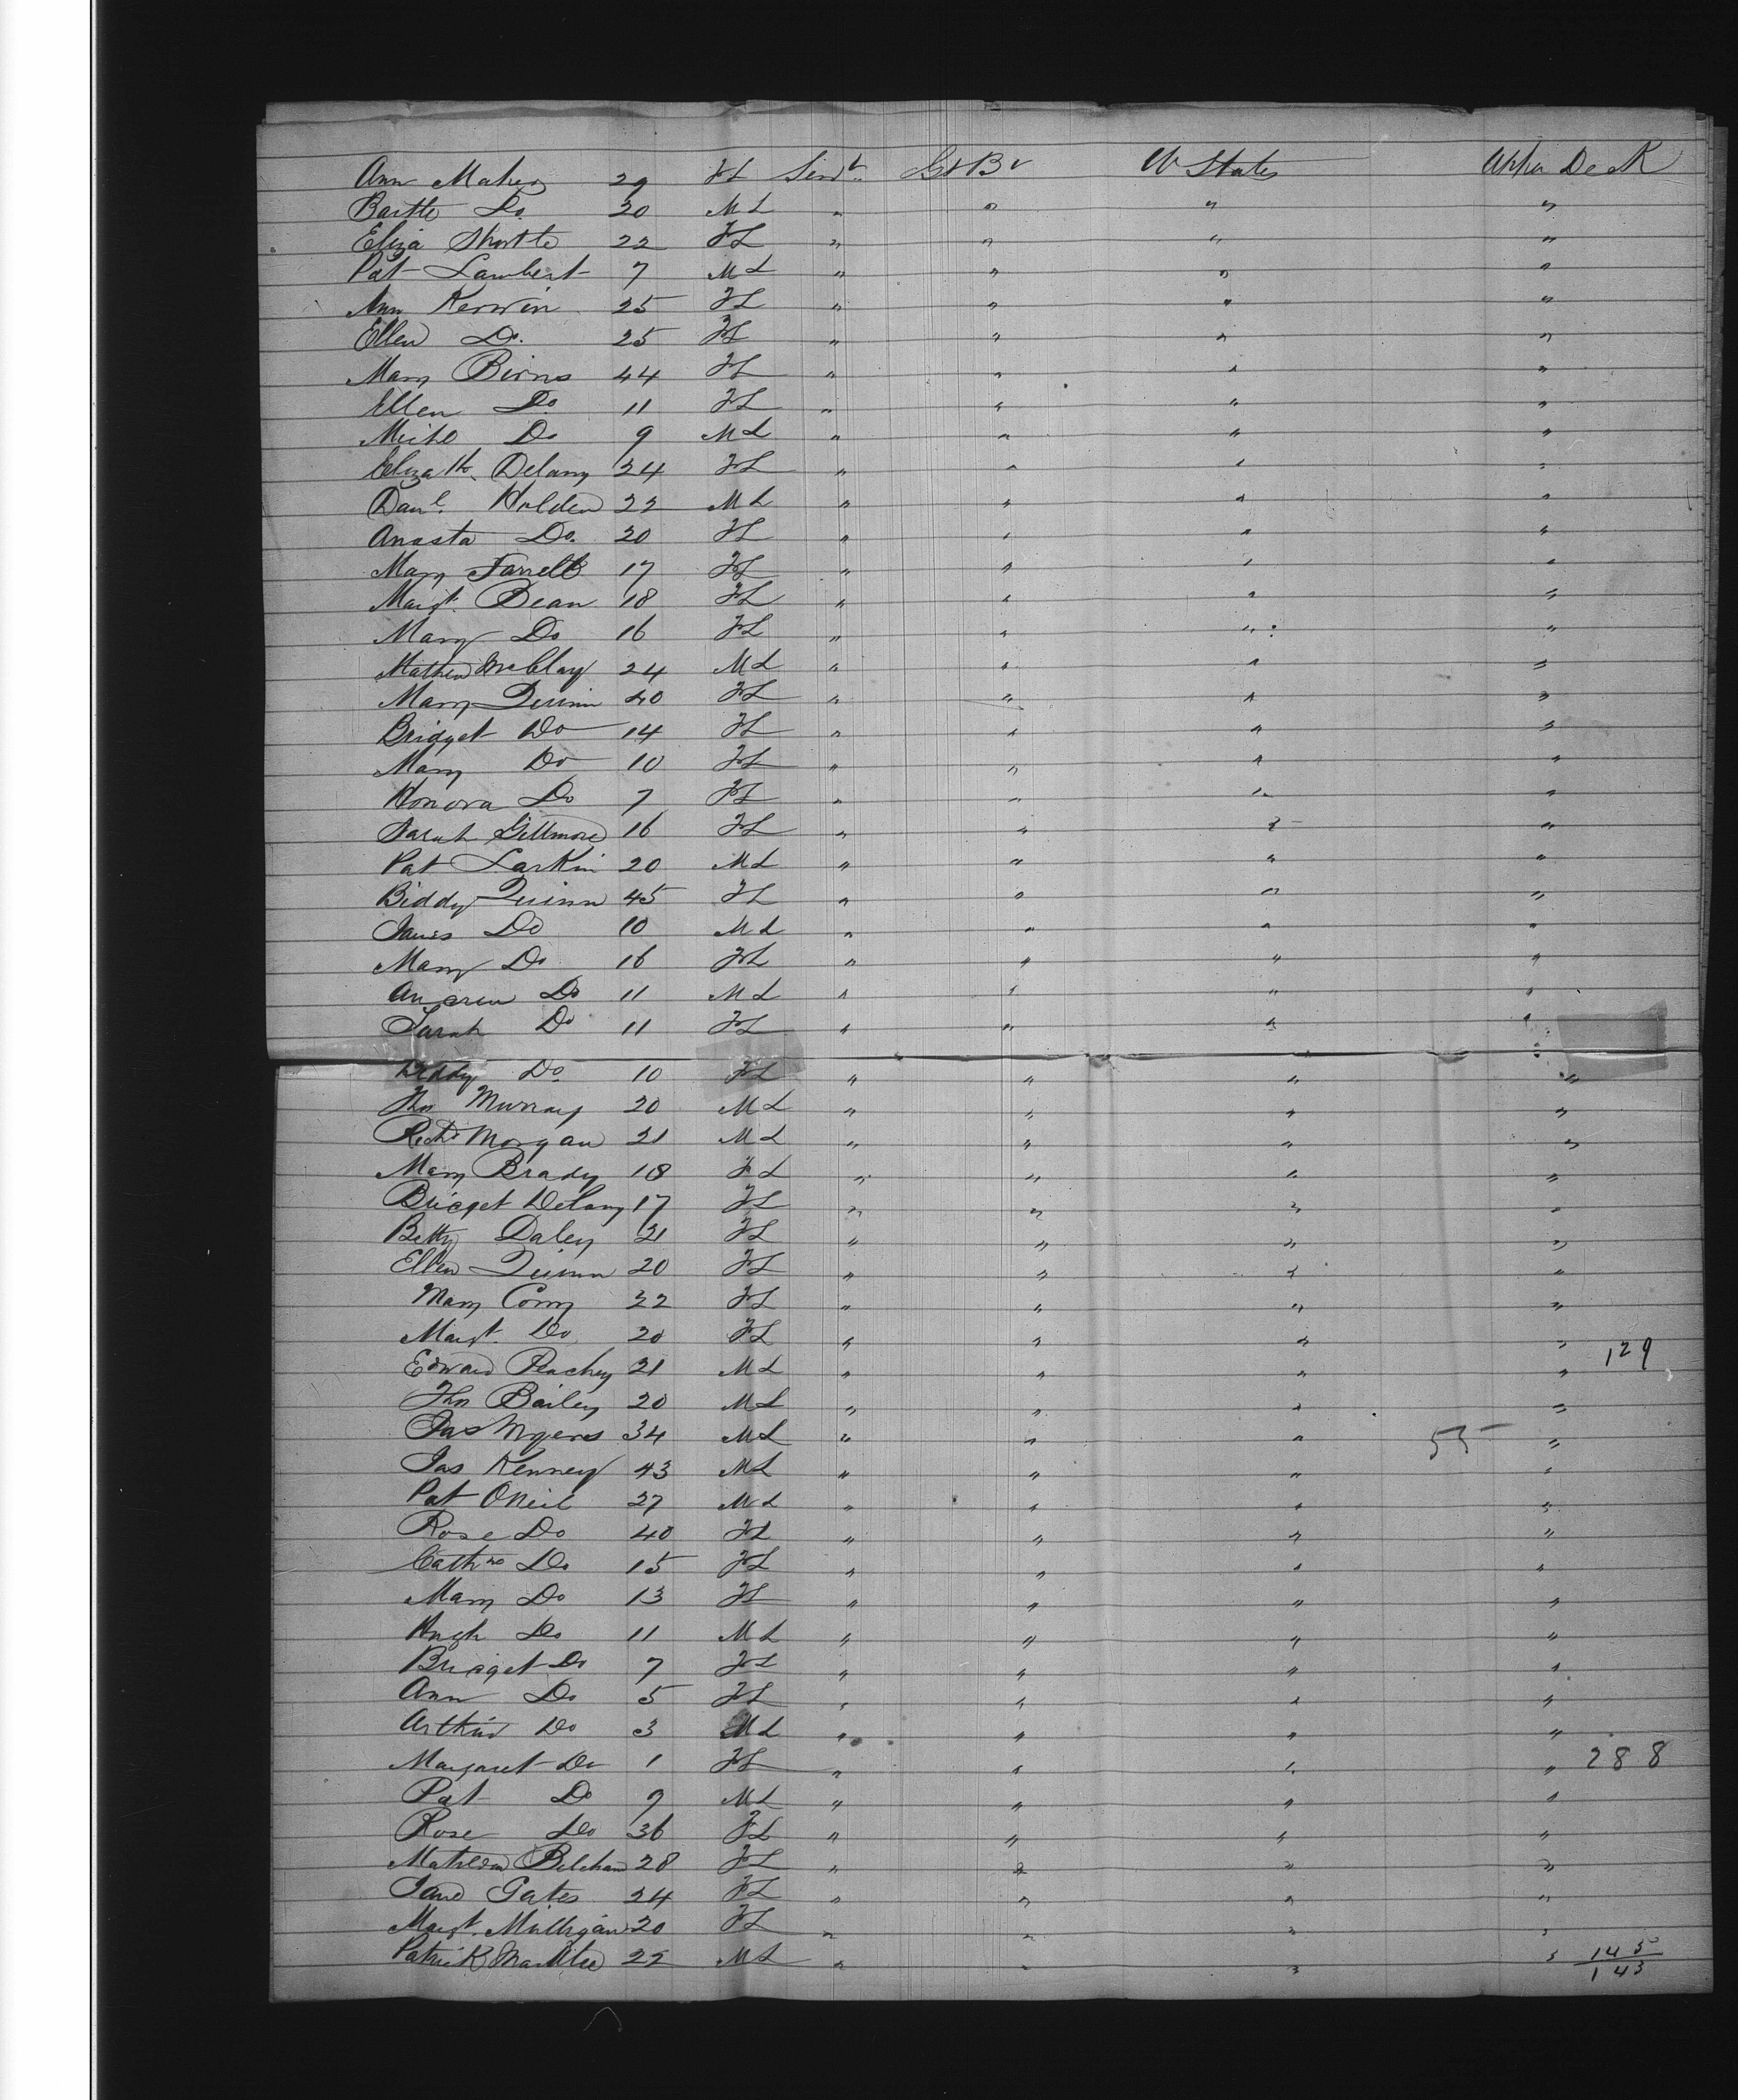 Ann Maher 29 F L Serv't Gt B U States Upper Deck
Bartle Do. 20 M L " " " "
Eliza Shortte 22 F L " " " "
Pat Lambert 7 M L " " " "
Ann Kerwin 25 F L " " " "
Ellen Do. 25 F L " " " "
Mary Birns 44 F L " " " "
Ellen Do 11 F L " " " "
Michl Do 9 M L " " " "
Elizath. Delany 24 F L " " " "
Danl. Holden 22 M L " " " "
Anasta Do. 20 F L " " " "
Mary Farrell 17 F L " " " "
Margt. Bean 18 F L " " " "
Mary Do 16 F L " " " "
Mathew McClay 24 M L " " " "
Mary Quinn 40 F L " " " "
Bridget Do 14 F L " " " "
Mary Do 10 F L " " " "
Honora Do 7 F L " " " "
Sarah Gillmore 16 F L " " " "
Pat Larkin 20 M L " " " "
Biddy Quinn 45 F L " " " "
James Do 10 M L " " " "
Mary Do 16 F L " " " "
Andrew Do 11 M L " " " "
Sarah Do 11 F L " " " "
Biddy Do 10 F L " " " "
Thos Murray 20 M L " " " "
Richd Morgan 21 M L " " " "
Mary Brady 18 F L " " " "
Bridget Delany 17 F L " " " "
Betty Daley 21 F L " " " "
Ellen Quinn 20 F L " " " "
Mary Corry 22 F L " " " "
Margt. Do 20 F L " " " "
Edward Peachey 21 M L " " " " 129
Thos Bailey 20 M L " " " "
Jas Myers 34 M L " " " 55 "
Jas Kenney 43 M L " " " "
Pat ONeil 27 M L " " " "
Rose Do 40 F L " " " "
Cathne Do 15 F L " " " "
Mary Do 13 F L " " " "
Hugh Do 11 M L " " " "
Bridget Do 7 F L " " " "
Ann Do 5 F L " " " "
Arthur Do 3 M L " " " "
Margaret Do 1 F L " " " " 288
Pat Do 9 M L " " " "
Rose Do 36 F L " " " "
Matilda Belcham 28 F L " " " "
Jane Gates 24 F L " " " "
Margt. Mulligan 20 F L " " " "
Patrick 22 M L " " " " 145
143